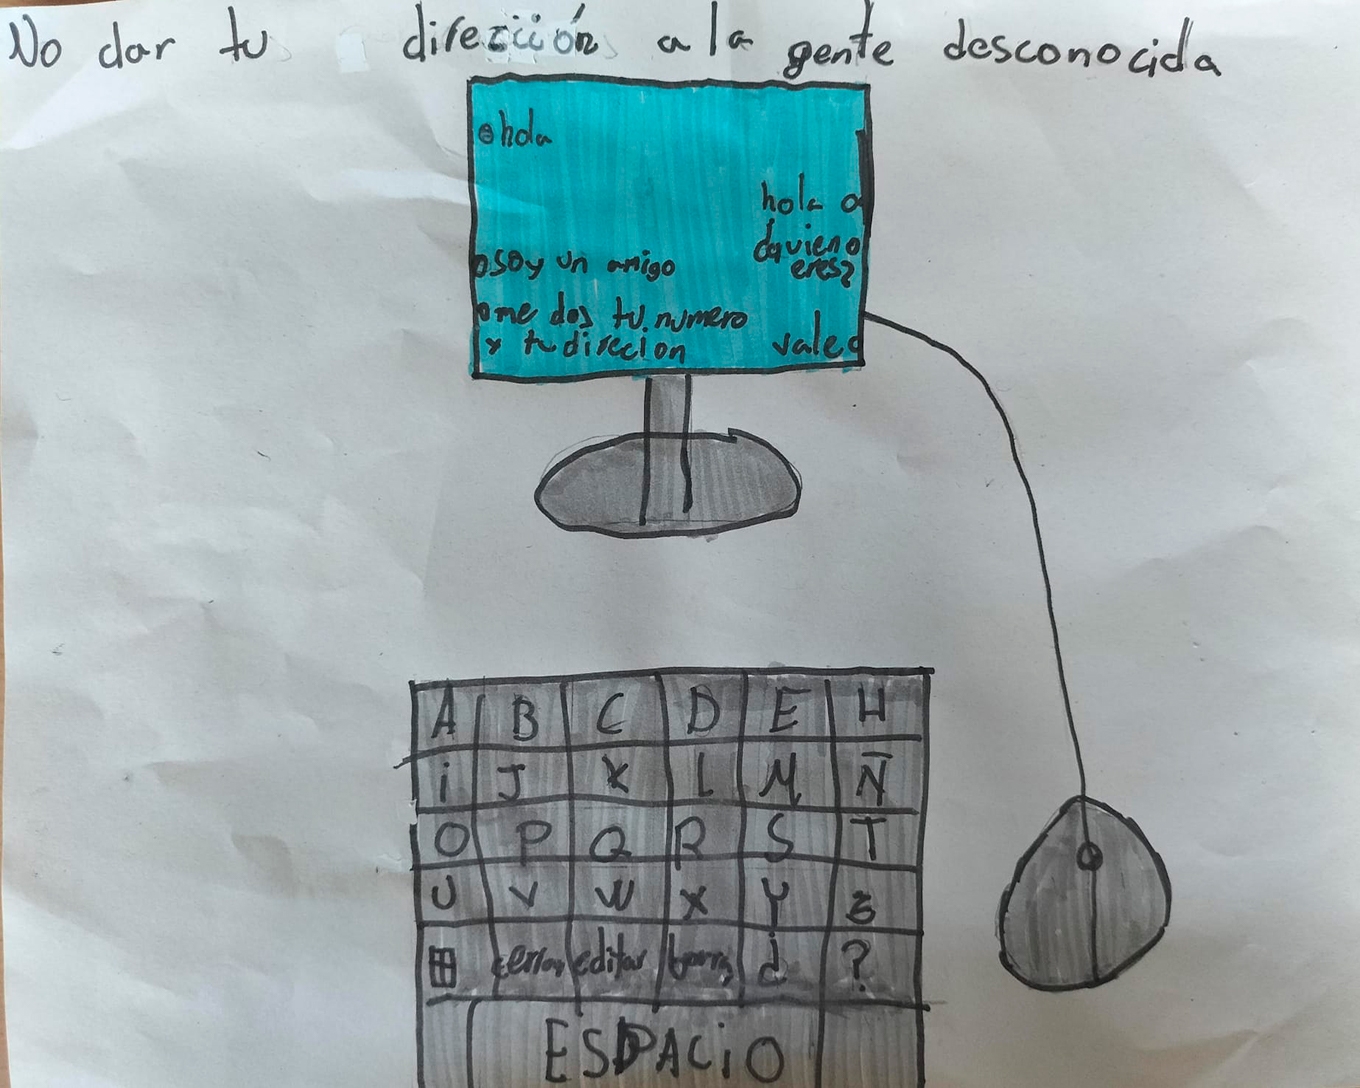 No dar tu direzción a la gente desconocida
hola
hola
¿quien
eres?
soy un amigo
me das tu numero
y tu direcion
vale
A B C D E H
i J K L M Ñ
O P Q R S T
U V W X Y Z
cerrar editar borrar ¿ ?
ESPACiO